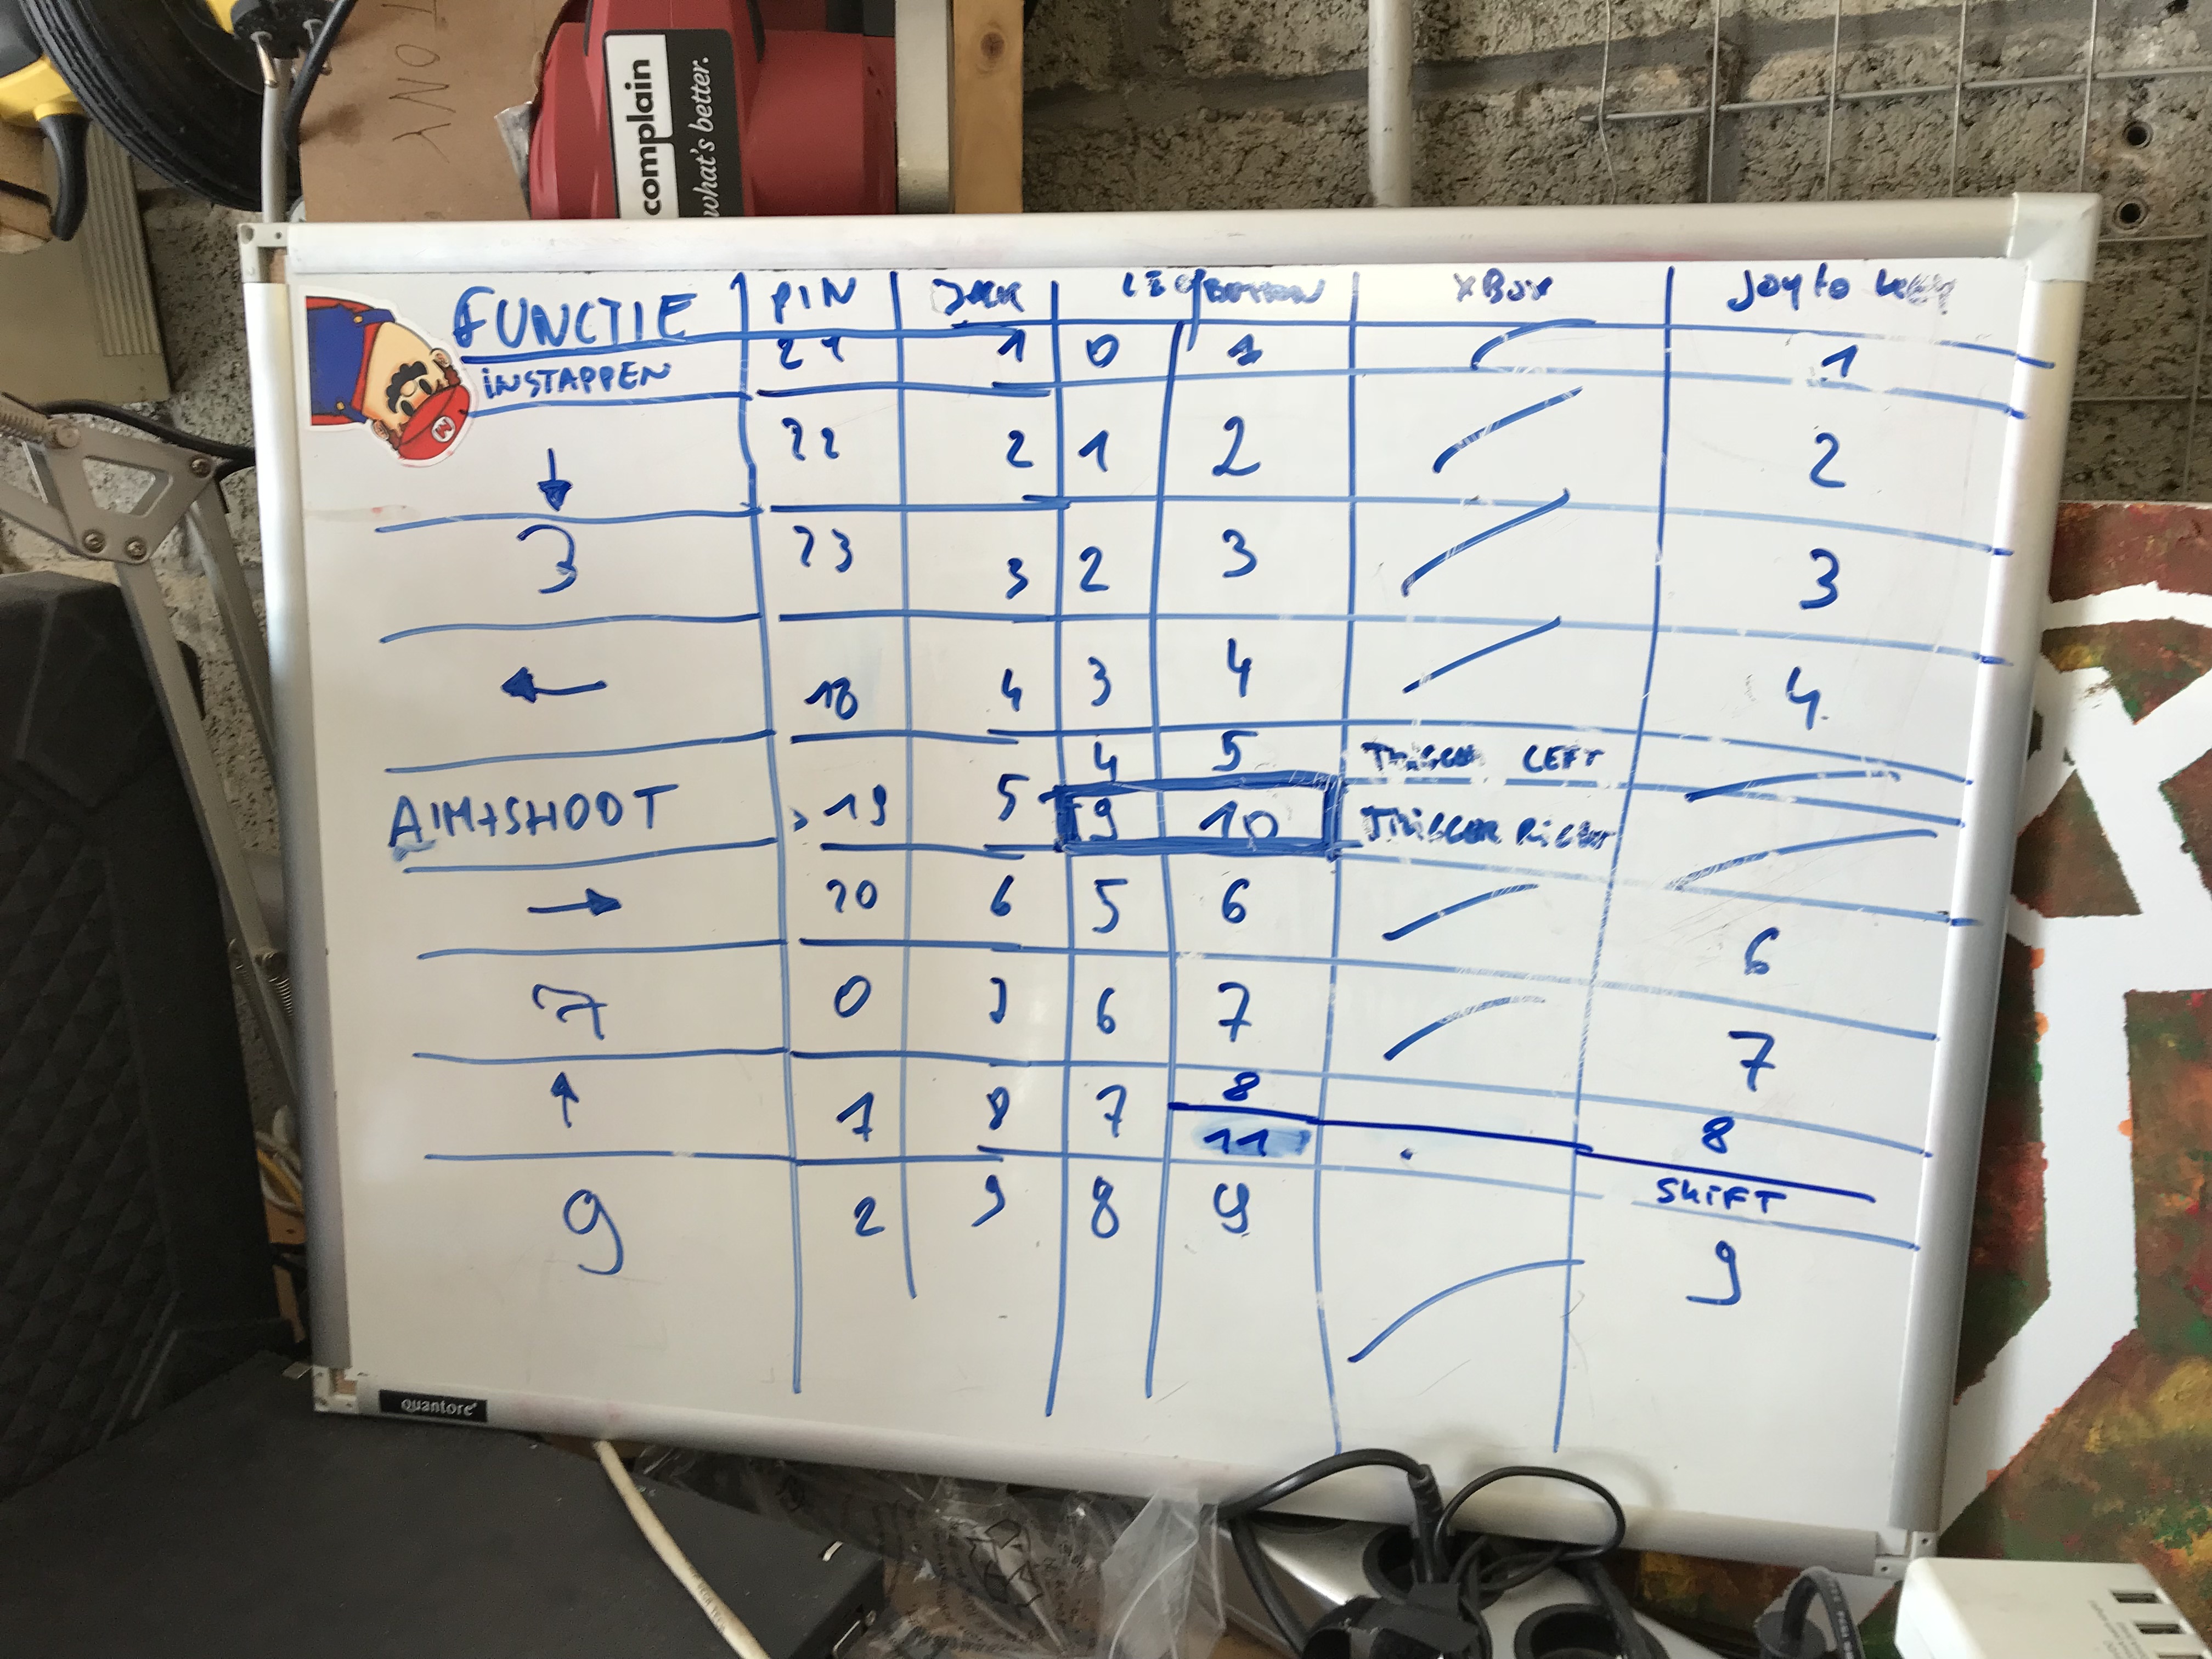 complain
what's better.
FUNCTIE PIN JACK BUTTON XBOX Joy to key
INSTAPPEN 21 1 0 1 1
↓ 22 2 1 2 2
3 23 3 2 3 3
← 18 4 3 4 4
4 5 TRIGGER LEFT
AIM+SHOOT 19 5 9 10 TRIGGER RIGHT
→ 20 6 5 6 6
7 0 7 6 7 7
↑ 1 8 7 8 8
11 SHIFT
9 2 9 8 9 9
quantore